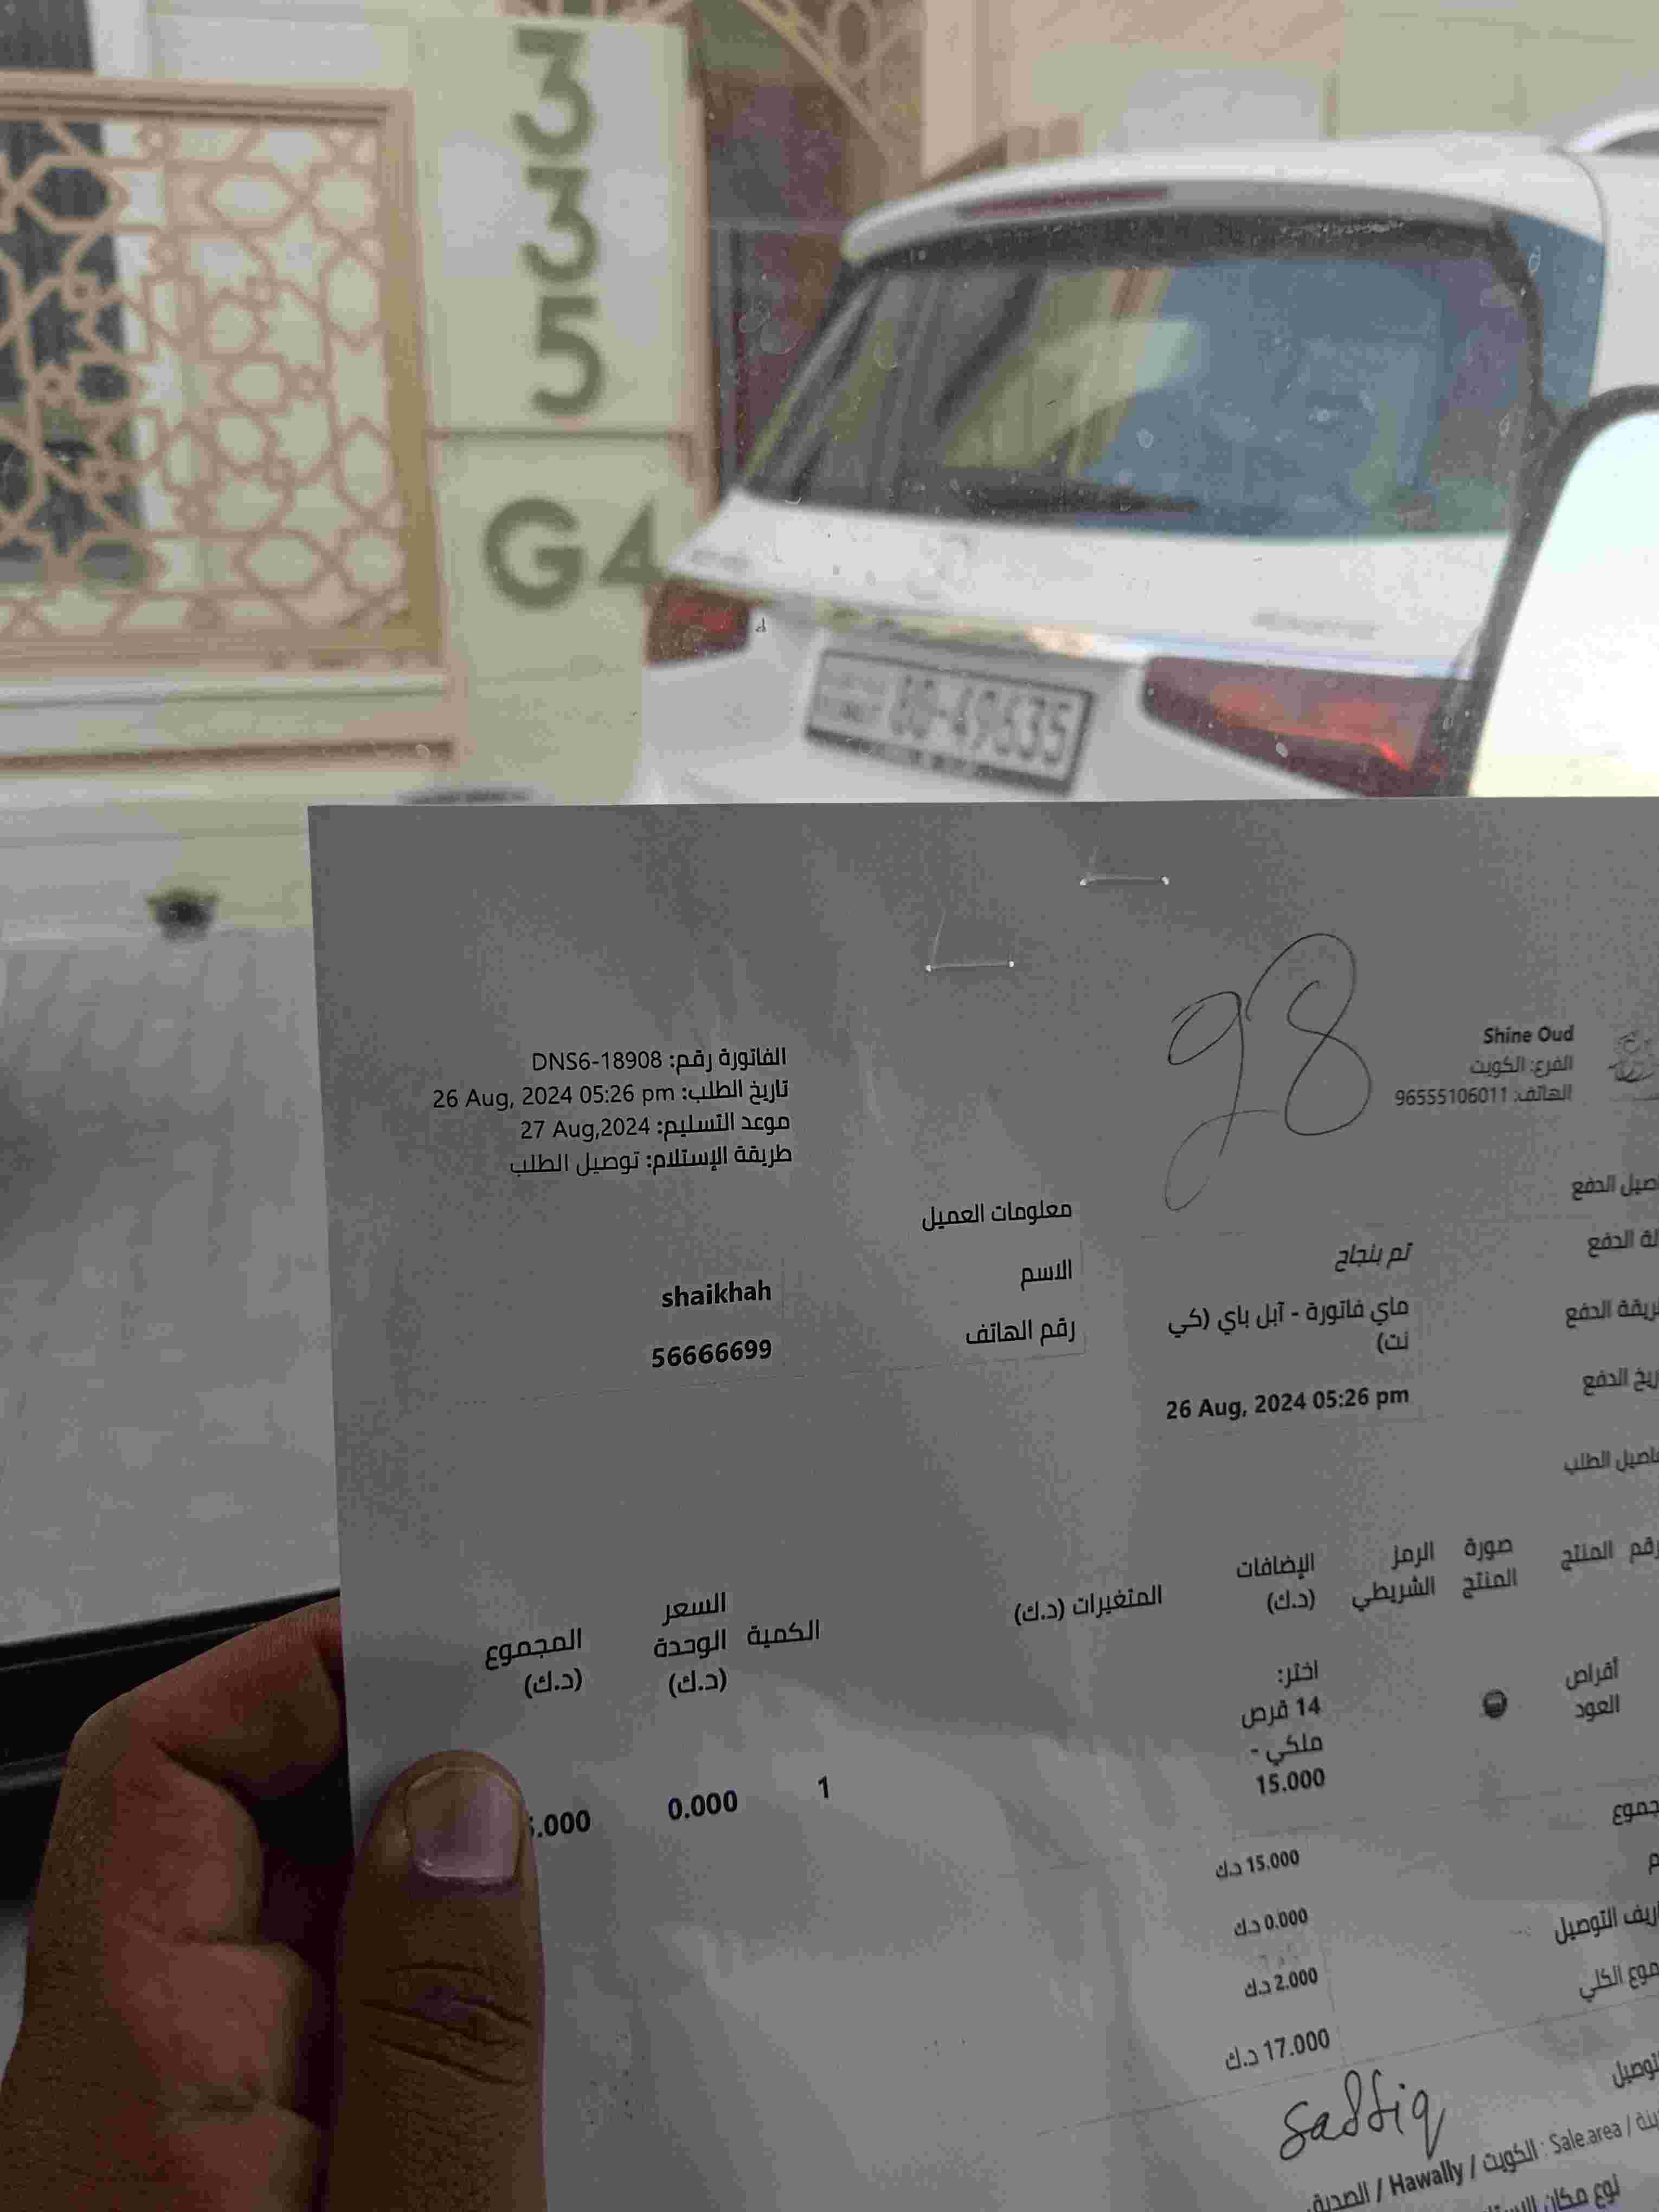 3
3
5
G4
80-49635
98
Shine Oud
الفرع: الكويت
الهاتف: 96555106011
الفاتورة رقم: DNS6-18908
تاريخ الطلب: 26 Aug, 2024 05:26 pm
موعد التسليم: 27 Aug,2024
طريقة الإستلام: توصيل الطلب
الدفع
الدفع تم بنجاح
الدفع ماي فاتورة - آبل باي (كي
نت)
الدفع 26 Aug, 2024 05:26 pm
معلومات العميل
الاسم shaikhah
رقم الهاتف 56666699
الطلب
رقم المنتج صورة المنتج الرمز الشريطي الإضافات (د.ك) المتغيرات (د.ك) الكمية السعر الوحدة (د.ك) المجموع (د.ك)
أقراص
العود
اختر:
14 قرص
ملكي -
15.000
1 0.000 .000
15.000 د.ك
0.000 د.ك
التوصيل 2.000 د.ك
الكلي 17.000 د.ك
saddiq
Sale.area : الكويت / Hawally /
نوع مكان